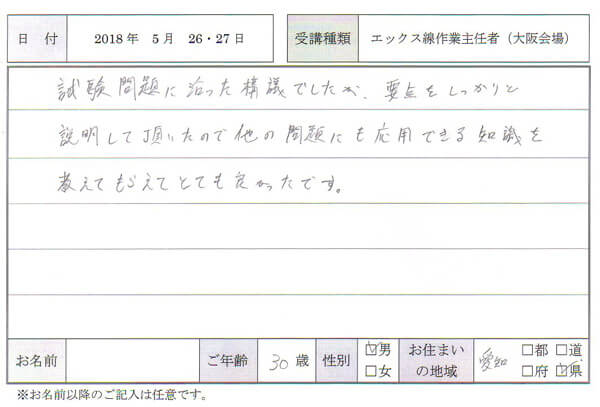 日 付 2018 年 5 月 26・27 日 受講種類 エックス線作業主任者(大阪会場)
試験問題に沿った構議でしたが、要点をしっかりと
説明して頂いたので他の問題にも応用できる知識を
教えてもらえてとても良かったです。
お名前 ご年齢 30 歳 性別 ☑男 □女 お住まいの地域 愛知 □都 □道 □府 ☑県
※お名前以降のご記入は任意です。